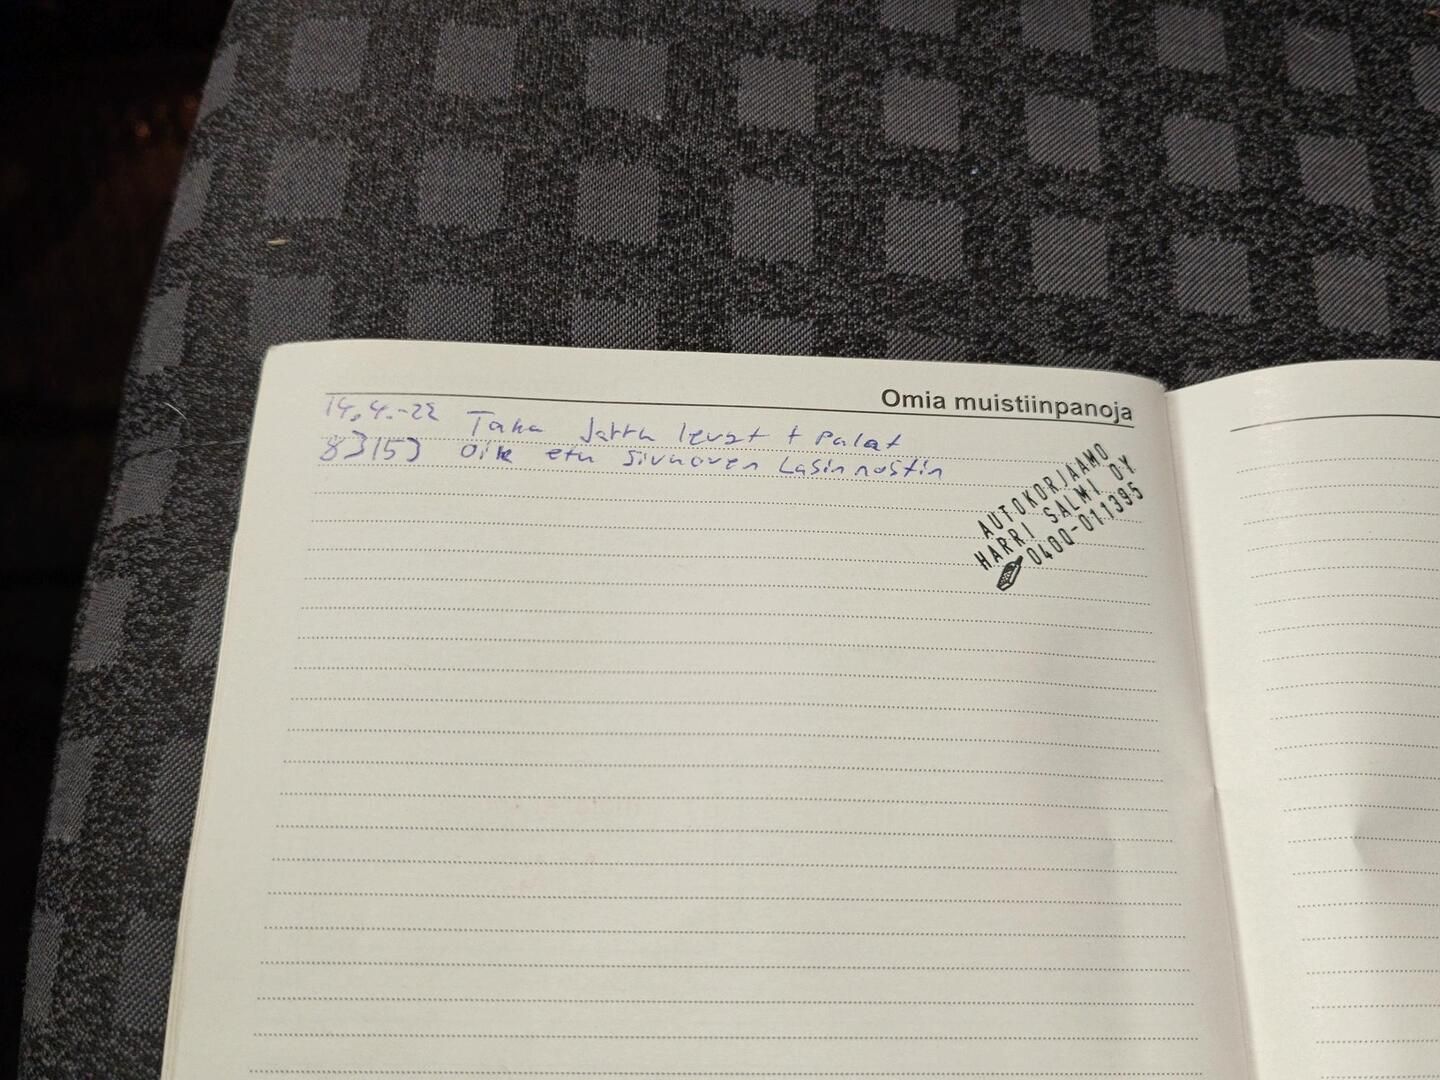 Omia muistiinpanoja
14.4.-22 Taka Jarru levyt + Palat
83153 Oik etu Sivuoven Lasin nostin
AUTOKORJAAMO
HARRI SALMI OY
0400-011395